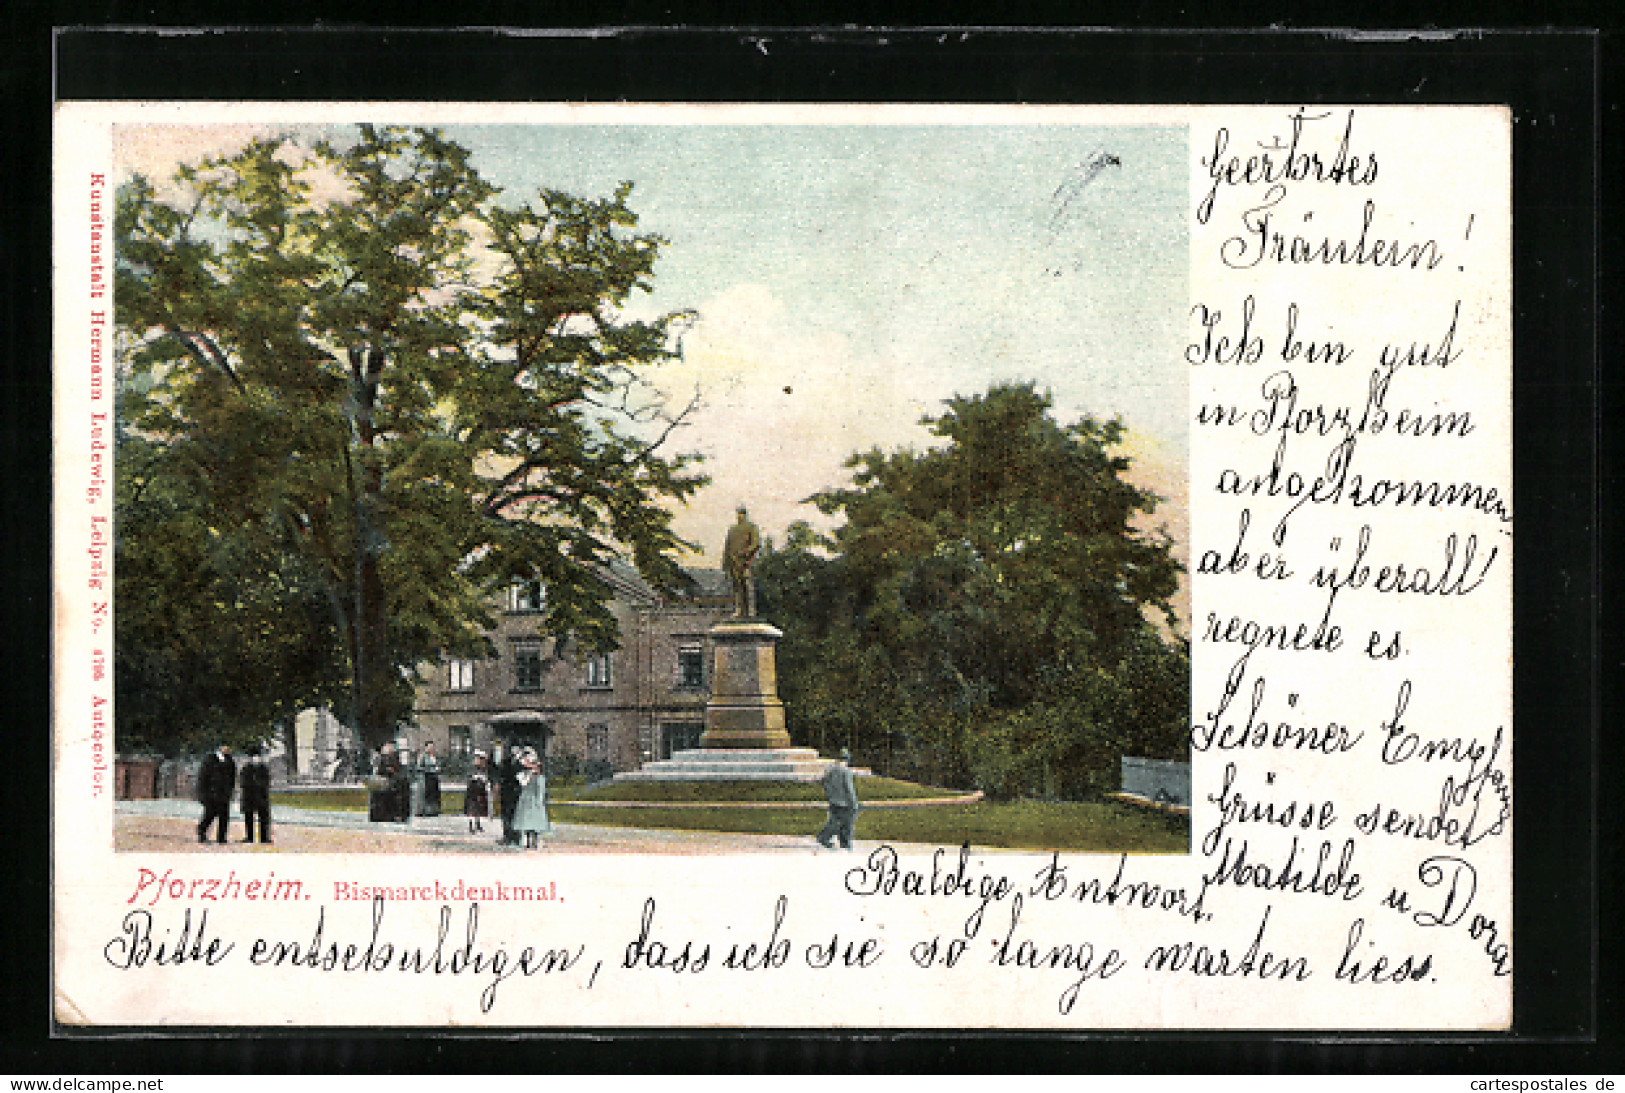 Geehrtes
Fräulein!
Ich bin gut
in Pforzheim
angekommen
aber überall
regnete es.
Schöner Empfang
Grüsse sendet
Matilde u Dora
Baldige Antwort.
Bitte entschuldigen, dass ich sie so lange warten liess.
Pforzheim. Bismarckdenkmal.
Kunstanstalt Hermann Ludewig, Leipzig No. 4795 Autocolor.
www.delcampe.net
cartespostales de